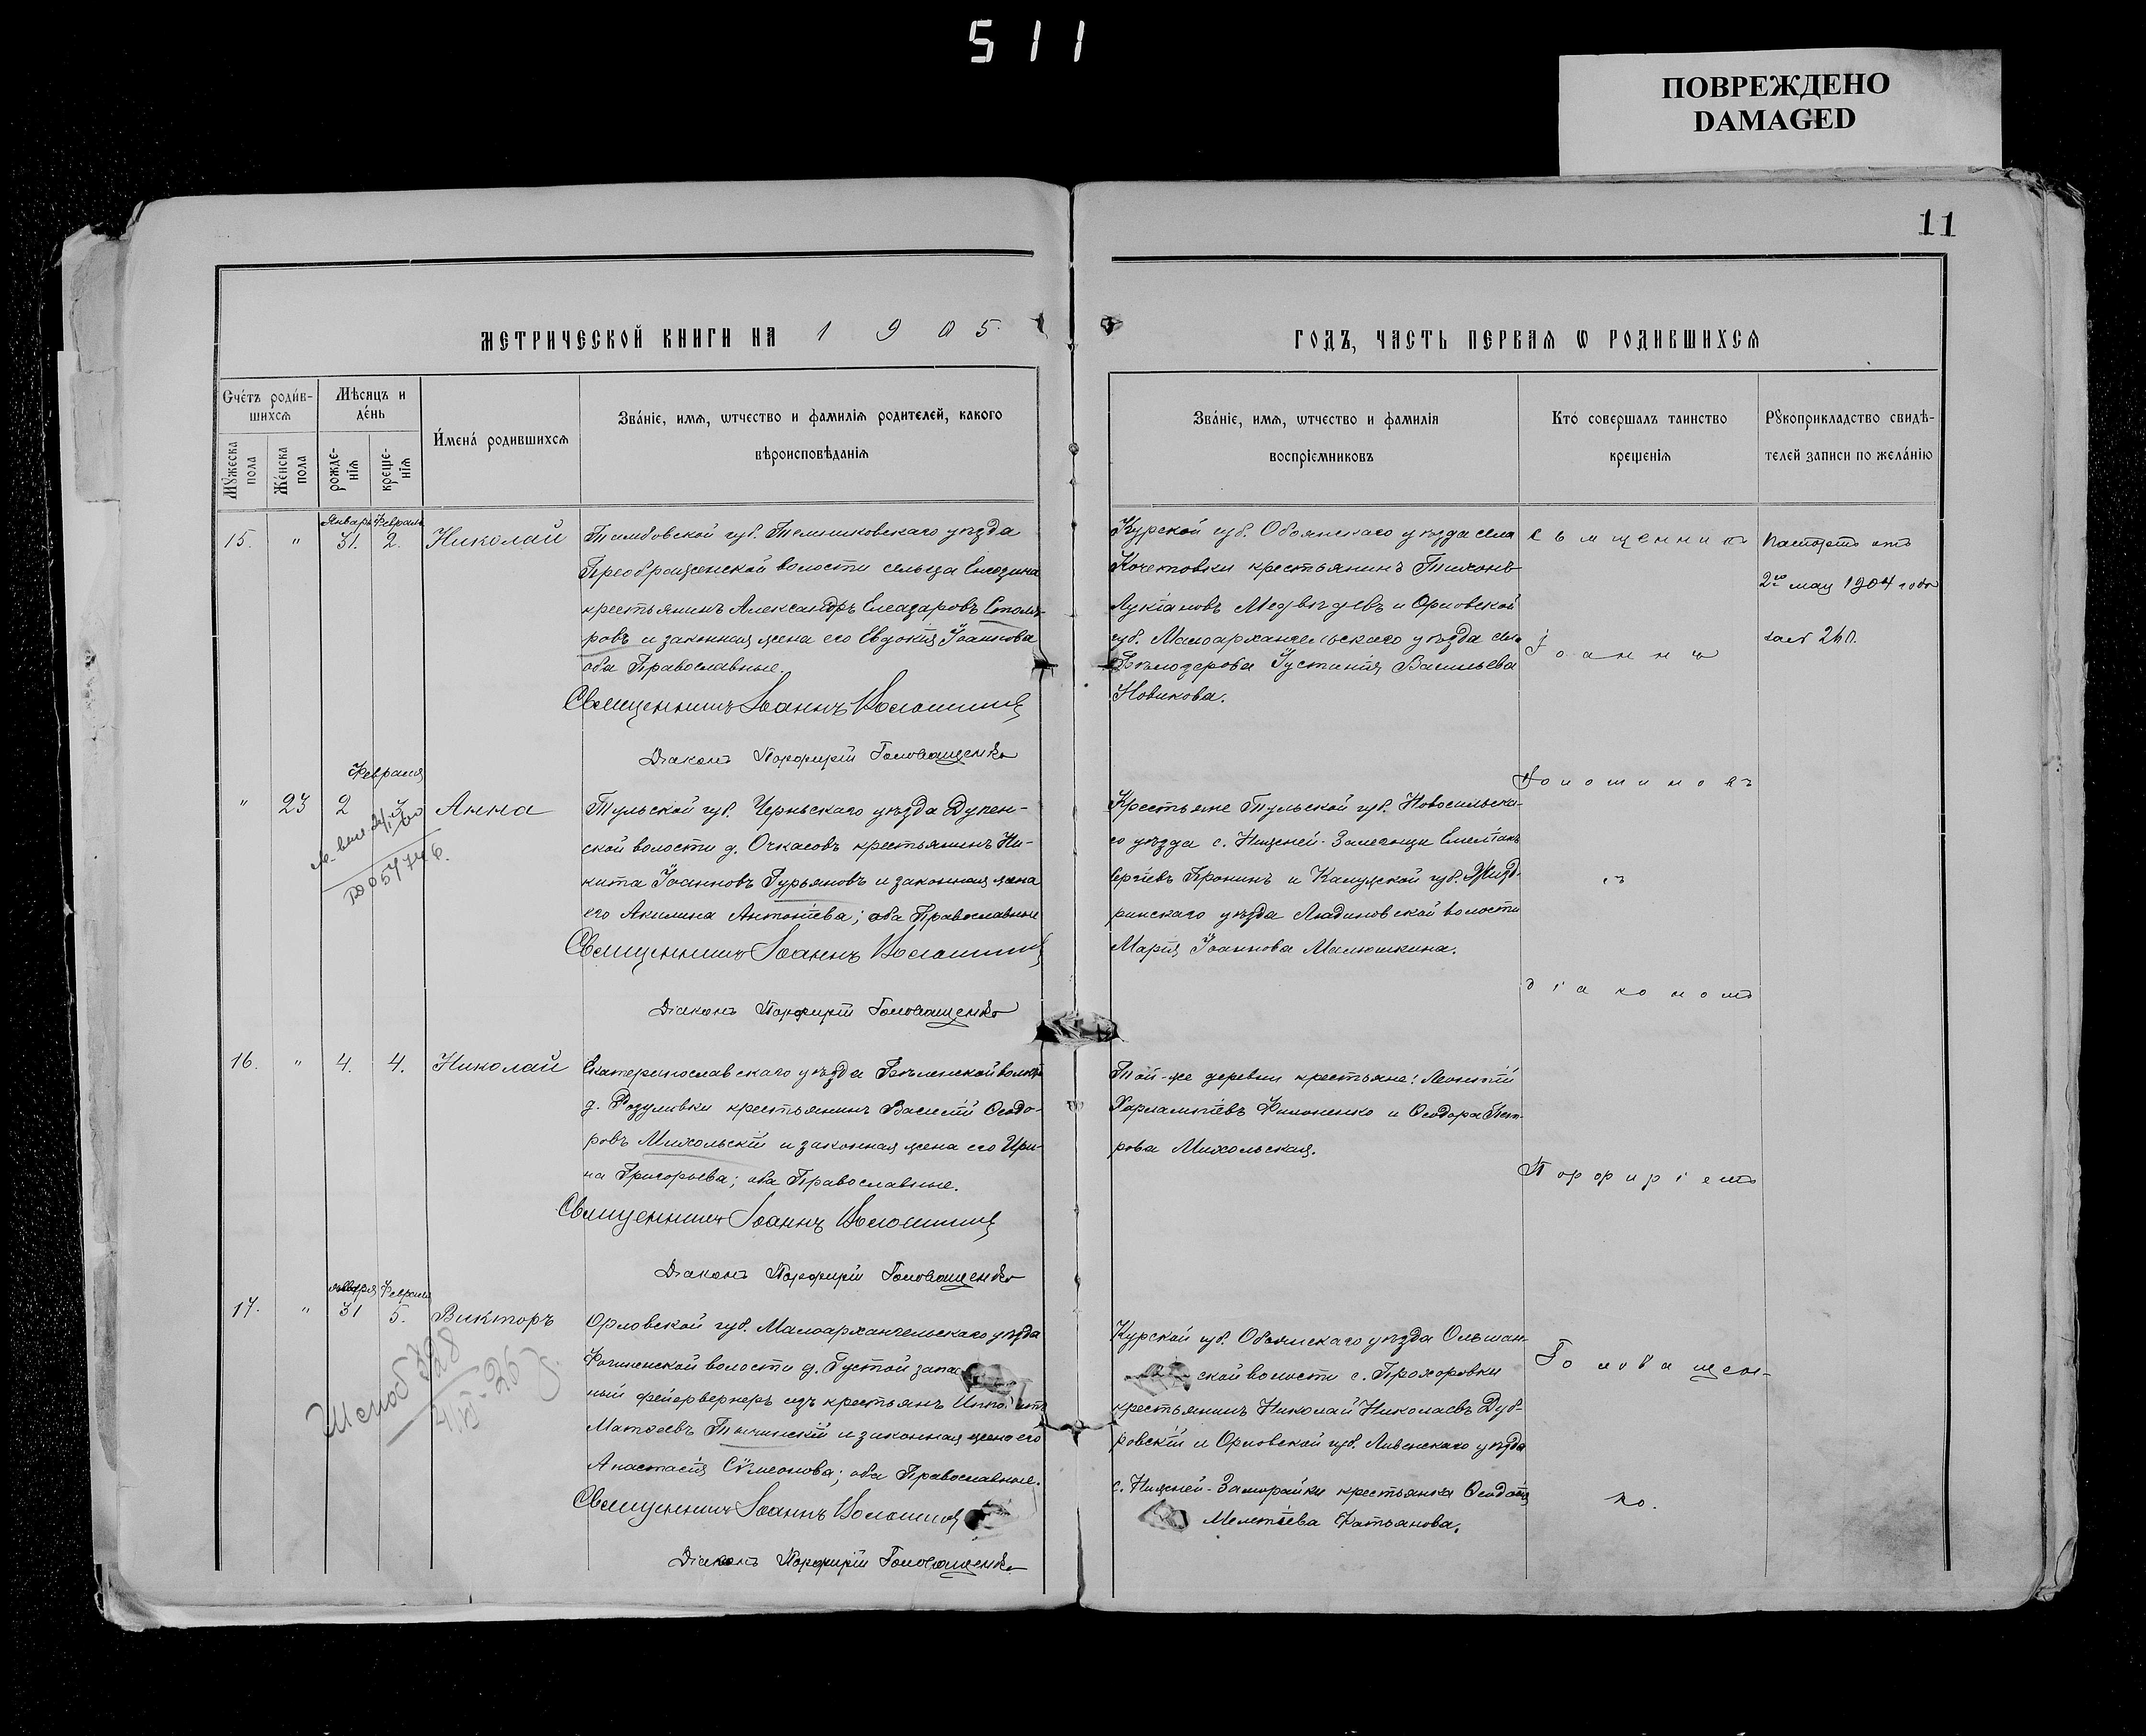 511
ПОВРЕЖДЕНО
DAMAGED
11
МЕТРИЧЕСКОЙ КНИГИ НА 1905
ГОДЪ, ЧАСТЬ ПЕРВАѦ Ѡ РОДИВШИХСѦ
Счéтъ роди́в-
шихсѧ
Мѣсѧцъ и
дéнь
Мꙋжеска
пола
Жéнска
пола
рожде-
ніѧ
креще-
ніѧ
И́мена́ родившихсѧ
Зва́ніе, имѧ, ѡтчество и фамилія родителей, какого
вѣроисповѣданіѧ
Зва́ніе, имѧ, ѡтчество и фамилія
воспріемниковъ
Кто́ совершалъ таинство
крещеніѧ
Рꙋкоприкладство свидѣ-
телей записи по жела́нію
15. " Январь 31. Февраль 2. Николай
Тамбовской губ. Темниковскаго уѣзда
Преображенской волости сельца
крестьянинъ Александръ Елеазаровъ Столя-
ровъ и законная жена его Евдокія Іоаннова
оба Православные.
Священникъ Іоаннъ Волошиновъ
Діаконъ Порфирій Головащенко
Курской губ. Обоянскаго уѣзда села
Кочетовки крестьянинъ Тихонъ
Лукіановъ Медвѣдевъ и Орловской
губ. Малоархангельскаго уѣзда села
Іустинія Васильева
Новикова.
Священникъ
Іоаннъ
Волошиновъ
съ
діакономъ
Порфиріемъ
Головащен-
ко.
Паспортъ отъ
2го мая 1904 года
" 23 Февраля 2 Анна
Тульской губ. Черньскаго уѣзда Дупен-
ской волости д. Очкасовъ крестьянинъ Ни-
кита Іоанновъ Гурьяновъ и законная жена
его Акилина Антоніева; оба Православные
Священникъ Іоаннъ Волошиновъ
Діаконъ Порфирій Головащенко
Крестьяне Тульской губ. Новосильска-
го уѣзда с. Нижней-Залегощи Емеліанъ
Сергіевъ Пронинъ и Калужской губ. Жизд-
ринскаго уѣзда Людиновской волости
Марія Іоаннова Малюшкина.
16. " 4. 4. Николай
Екатеринославскаго уѣзда волости
д. крестьянинъ Василій Ѳеодо-
ровъ Михольскій и законная жена его Ири-
на Григорьева; оба Православные.
Священникъ Іоаннъ Волошиновъ
Діаконъ Порфирій Головащенко
Той-же деревни крестьяне: Леонтій
Харлампіевъ Филоненко и Ѳеодора Пет-
рова Михольская.
17. " Января 31 Февраля 5. Викторъ
Орловской губ. Малоархангельскаго уѣзда
волости д. Густой запас
ный фейерверкеръ изъ крестьянъ
Матѳеевъ и законная жена его
Анастасія Сѵмеонова; оба Православные.
Священникъ Іоаннъ Волошиновъ
Діаконъ Порфирій Головащенко
Курской губ. Обоянскаго уѣзда Ольшан-
ской волости с. Прохоровки
крестьянинъ Николай Николаевъ Дуб-
ровскій и Орловской губ. Ливенскаго уѣзда
с. Нижней-Заморайки крестьянка Ѳеодосія
Мелетіева Фатьянова.